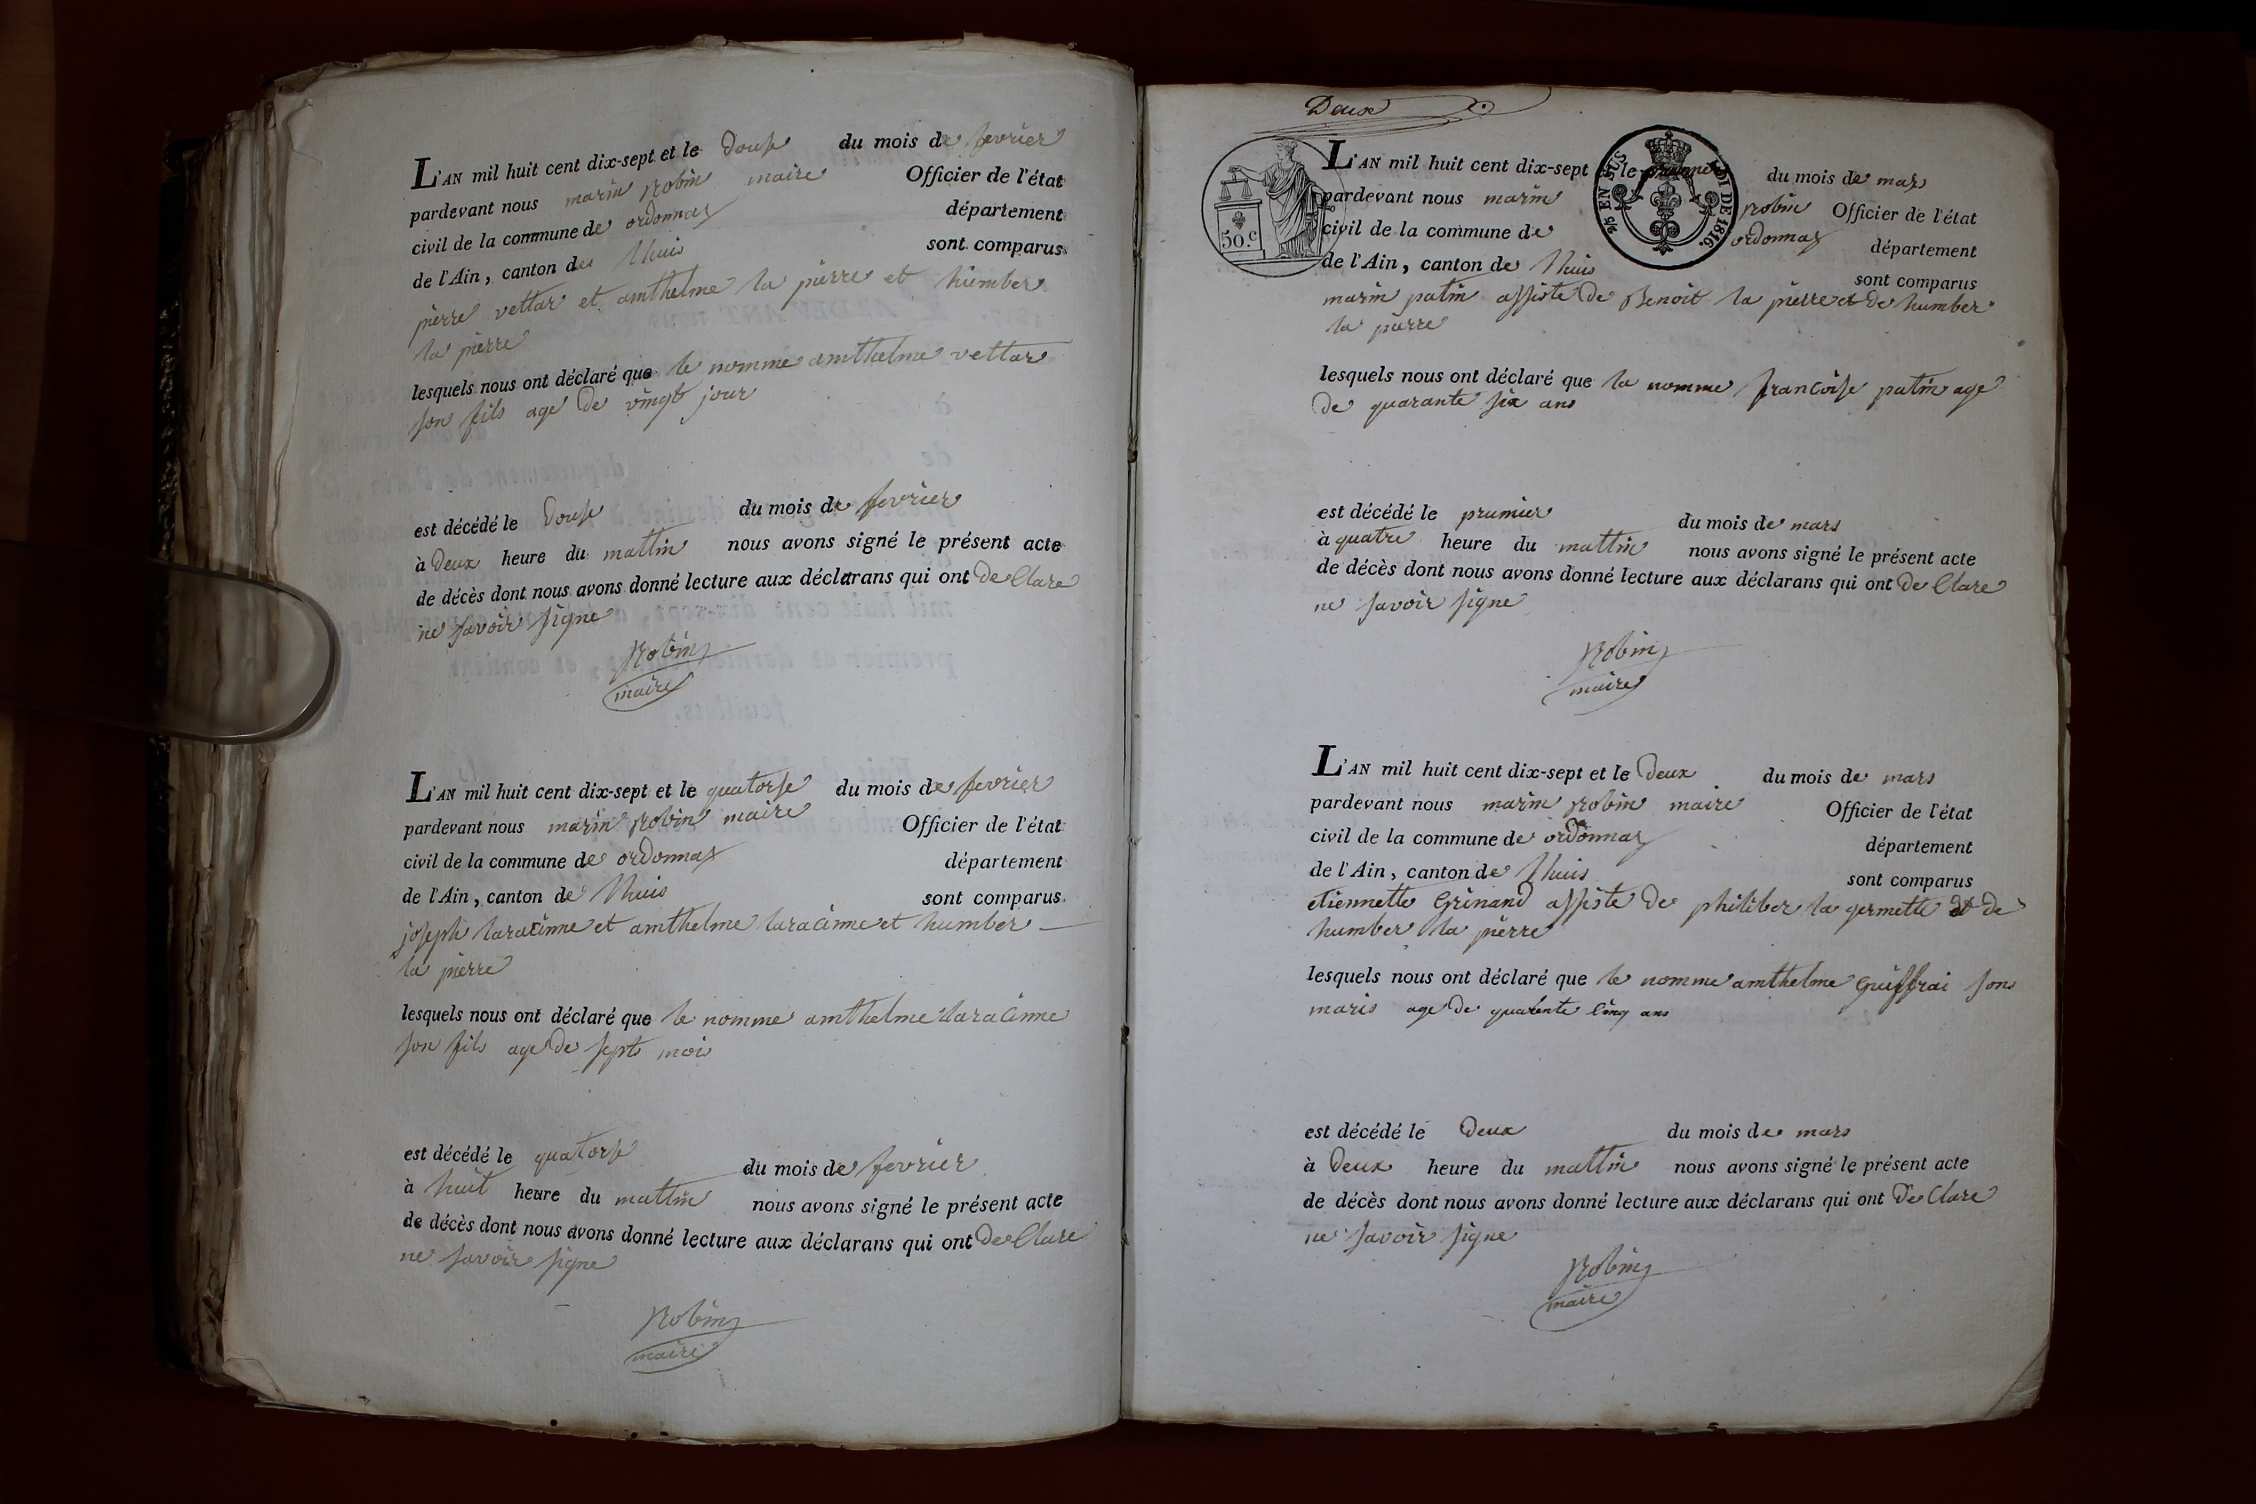 L'AN mil huit cent dix-sept et le douse du mois de fevrier
pardevant nous marin robin maire Officier de l'état
civil de la commune de ordonnas département
de l'Ain, canton de lhuis sont comparus
pierre vettar et amthelme la pierre et humber
la pierre
lesquels nous ont déclaré que le nomme amthelme vettar
son fils age de vingt jour
est décédé le douse du mois de fevrier
à deux heure du mattin nous avons signé le présent acte
de décès dont nous avons donné lecture aux déclarans qui ont de Clare
ne savoir signe
Robin
maire
L'AN mil huit cent dix-sept et le quatorse du mois de fevrier
pardevant nous marin robin maire Officier de l'état
civil de la commune de ordonnas département
de l'Ain, canton de lhuis sont comparus
joseph laracinne et amthelme laracinne et humber
la pierre
lesquels nous ont déclaré que le nomme amthelme laracinne
son fils age de septs mois
est décédé le quatorse du mois de fevrier
à huit heure du mattin nous avons signé le présent acte
de décès dont nous avons donné lecture aux déclarans qui ont de Clare
ne savoir signe
Robin
maire
Deux
50.c
2/5 EN SUS
LOI DE 1816.
L'AN mil huit cent dix-sept le prumier du mois de mars
pardevant nous marin robin Officier de l'état
civil de la commune de ordonnas département
de l'Ain, canton de lhuis sont comparus
marin patin assiste de Benoit la pierre et de humber
la pierre
lesquels nous ont déclaré que la nomme francoise patin age
de quarante six ans
est décédé le prumier du mois de mars
à quatre heure du mattin nous avons signé le présent acte
de décès dont nous avons donné lecture aux déclarans qui ont de Clare
ne savoir signe
Robin
maire
L'AN mil huit cent dix-sept et le deux du mois de mars
pardevant nous marin robin maire Officier de l'état
civil de la commune de ordonnas département
de l'Ain, canton de lhuis sont comparus
etiennette Grinand assiste de philiber la germette et de
humber la pierre
lesquels nous ont déclaré que le nomme amthelme Guiffrai sons
maris age de quarente cinq ans
est décédé le deux du mois de mars
à deux heure du mattin nous avons signé le présent acte
de décès dont nous avons donné lecture aux déclarans qui ont de Clare
ne savoir signe
Robin
maire